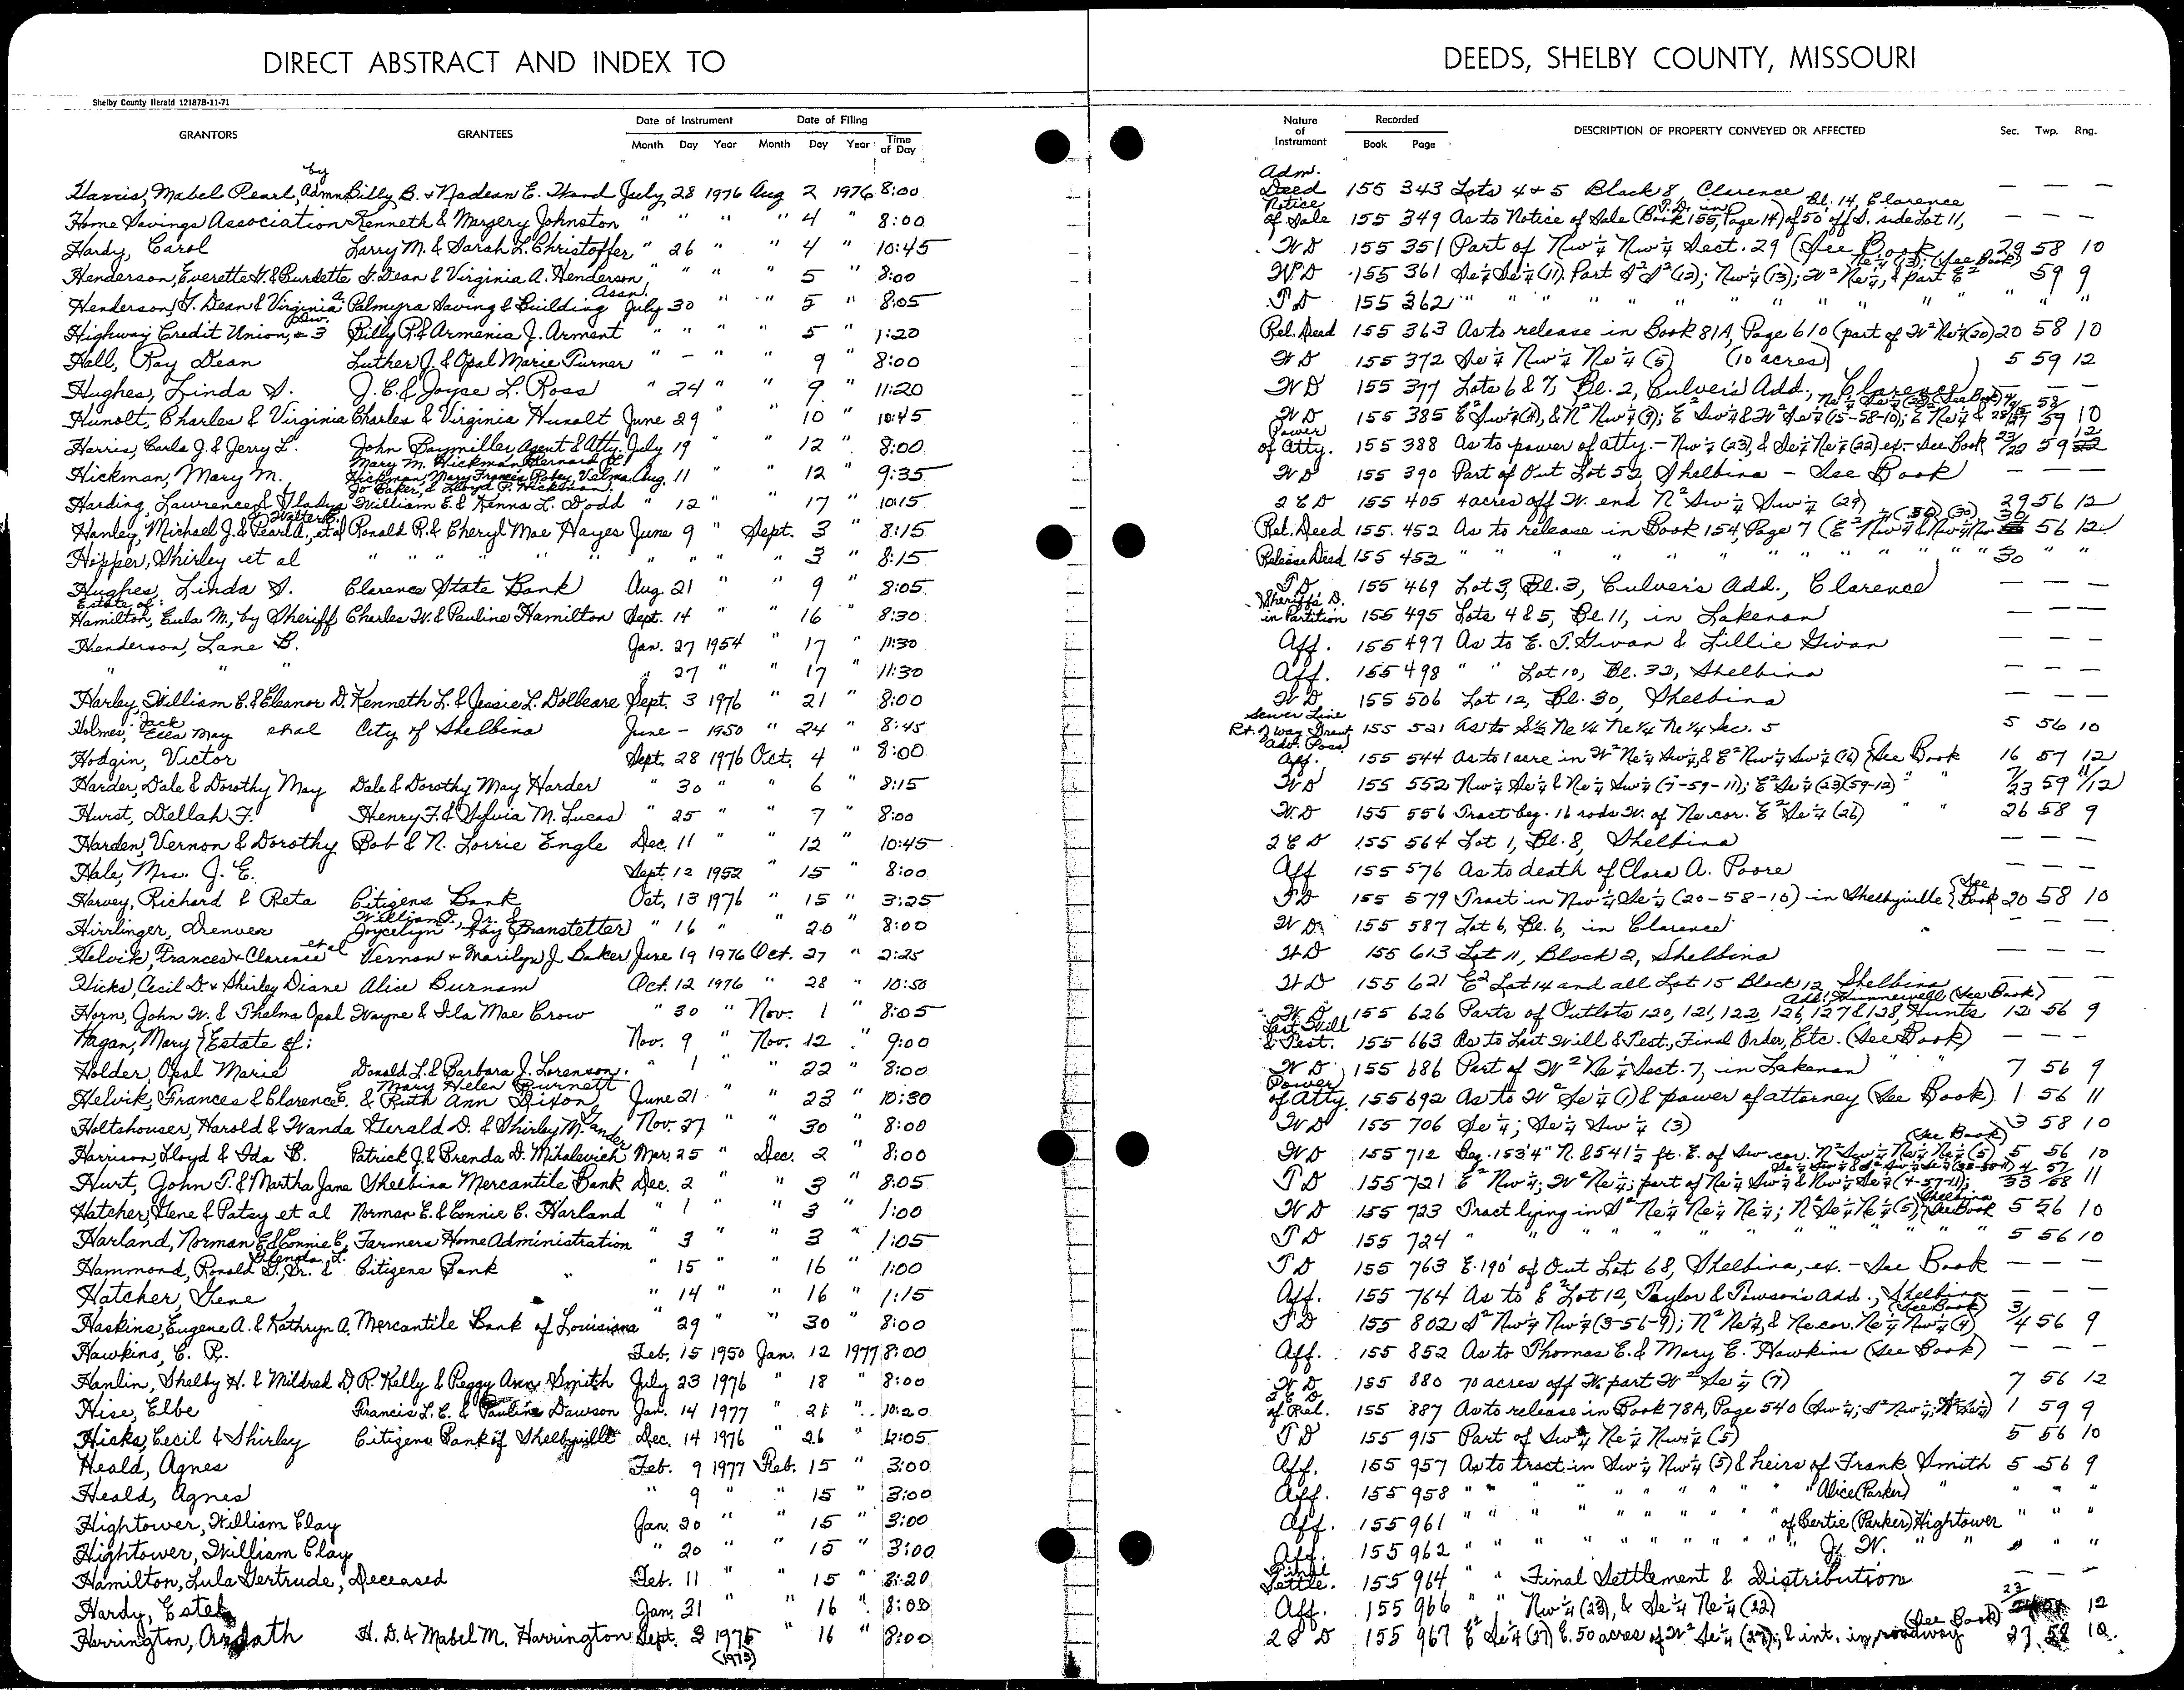 DIRECT ABSTRACT AND INDEX TO
DEEDS, SHELBY COUNTY, MISSOURI
Shelby County Herald 12187B-11-71
GRANTORS GRANTEES Date of Instrument Month Day Year Date of Filing Month Day Year Time of Day
Nature of Instrument Recorded Book Page DESCRIPTION OF PROPERTY CONVEYED OR AFFECTED Sec. Twp. Rng.
Harris, Mabel Pearl, by Admn. Billy B. & Nadean E. July 28 1976 Aug 2 1976 8:00 Adm. Deed 155 343 Lots 4 + 5 Block 8, Clarence — — —
Home Savings Association Kenneth & Margery Johnston " " " " 4 " 8:00 Notice of Sale 155 349 As to Notice of Sale (T.D. in Book 155, Page 14) of 50' off S. side Lot 11, Bl. 14, Clarence — — —
Hardy, Carol Larry M. & Sarah L. Christoffer " 26 " " 4 " 10:45 WD 155 351 Part of Nw¼ Nw¼ Sect. 29 (See Book 29 58 10
Henderson, Everette G. & Burdette G. Dean & Virginia A. Henderson " " " " 5 " 8:00 WD 155 361 Se¼ Se¼ (11), Part S² S² (12); Nw¼ (13); W² Ne¼, & part E² Ne¼ (13); (See Book) 59 9
Henderson, G. Dean & Virginia A. Palmyra Saving & Building Assn. July 30 " " 5 " 8:05 TD 155 362 " " " " " " " " " " "
Highway Credit Union, Div. #3 Billy R. & Armenia J. Arment " " " " 5 " 1:20 Rel. Deed 155 363 As to release in Book 81A, Page 610 (part of W² Ne¼ (20) 20 58 10
Hall, Ray Dean Luther J. & Opal Marie Turner " — " " 9 " 8:00 WD 155 372 Se¼ Nw¼ Ne¼ (5) (10 acres) 5 59 12
Hughes, Linda S. J.C. & Joyce L. Ross " 24 " " 9 " 11:20 WD 155 377 Lots 6 & 7, Bl. 2, Culver's Add., Clarence — — —
Hunolt, Charles & Virginia Charles & Virginia Hunolt June 29 " " 10 " 10:45 WD 155 385 E² Sw¼ (4), & N² Nw¼ (9); E² Sw¼ & W² Se¼ (15-58-10); E² Ne¼ & 59 10
Harris, Carla J. & Jerry L. John Baymiller, Agent & Atty. July 19 " " 12 " 8:00 Power of Atty. 155 388 As to power of atty. - Nw¼ (23), & Se¼ Ne¼ (22) ex. - See Book 23/22 59 12
Hickman, Mary M. Mary M. Hickman, Bernard Hickman, Mary Frances Pobey, Velma Jo Baker, & Lloyd P. Hickman Aug. 11 " " 12 " 9:35 WD 155 390 Part of Out Lot 52, Shelbina - See Book — — —
Harding, Lawrence & Gladys William E. & Kenna L. Dodd " 12 " " 17 " 10:15 2 E D 155 405 4 acres off W. end N² Sw¼ Sw¼ (29) 29 56 12
Hanley, Michael J. & Pearl A., et al Ronald R. & Cheryl Mae Hayes June 9 " Sept. 3 " 8:15 Rel. Deed 155 452 As to release in Book 154, Page 7 (E² Nw¼ & Nw¼ 30 56 12
Hopper, Shirley et al " " " " " " " " " 3 " 8:15 Release Deed 155 452 " " " " " " " " 30 " "
Hughes, Linda S. Clarence State Bank Aug. 21 " " 9 " 8:05 TD 155 469 Lot 3, Bl. 3, Culver's Add., Clarence — — —
Estate of: Hamilton, Eula M., by Sheriff Charles W. & Pauline Hamilton Sept. 14 " " 16 " 8:30 Sheriff's D. in Partition 155 495 Lots 4 & 5, Bl. 11, in Lakenan — — —
Henderson, Lane B. Jan. 27 1954 " 17 " 11:30 Aff. 155 497 As to E. T. Givan & Lillie Givan — — —
" " " " 27 " " 17 " 11:30 Aff. 155 498 " " Lot 10, Bl. 32, Shelbina — — —
Harley, William C. & Eleanor D. Kenneth L. & Jessie L. Dolbeare Sept. 3 1976 " 21 " 8:00 WD 155 506 Lot 12, Bl. 30, Shelbina — — —
Holmes, Jack Ella May et al City of Shelbina June — 1950 " 24 " 8:45 Sewer Line Rt. of Way Grant 155 521 As to S½ Ne¼ Ne¼ Ne¼ Sec. 5 5 56 10
Hodgin, Victor Sept. 28 1976 Oct. 4 " 8:00 Adv. Poss. Aff. 155 544 As to 1 acre in W² Ne¼ Sw¼, & E² Nw¼ Sw¼ (16) (See Book 16 57 12
Harder, Dale & Dorothy May Dale & Dorothy May Harder " 30 " " 6 " 8:15 WD 155 552 Nw¼ Se¼ & Ne¼ Sw¼ (7-59-11); E² Se¼ (23)(59-12) " " 7/23 59 11/12
Hurst, Dellah F. Henry F. & Sylvia M. Lucas " 25 " " 7 " 8:00 W.D. 155 556 Tract beg. 16 rods W. of Ne cor. E² Se¼ (26) " " 26 58 9
Harden, Vernon & Dorothy Bob & N. Lorrie Engle Dec. 11 " " 12 10:45 2 E D 155 564 Lot 1, Bl. 8, Shelbina — — —
Hale, Mrs. J. E. Sept. 12 1952 " 15 " 8:00 Aff 155 576 As to death of Clara A. Poore — — —
Harvey, Richard & Reta Citizens Bank Oct. 13 1976 " 15 " 3:25 TD 155 579 Tract in Nw¼ Se¼ (20-58-10) - in Shelbyville (See Book 20 58 10
Hirrlinger, Denver William G., Jr. & Joycelyn Kay Branstetter " 16 " " 20 " 8:00 WD 155 587 Lot 6, Bl. 6, in Clarence — — —
Helvik, Frances & Clarence et al Vernon & Marilyn J. Baker June 19 1976 Oct. 27 " 2:25 WD 155 613 Lot 11, Block 2, Shelbina — — —
Hicks, Cecil D. & Shirley Diane Alice Burnam Oct. 12 1976 " 28 " 10:50 WD 155 621 E² Lot 14 and all Lot 15 Block 12, Shelbina — — —
Horn, John W. & Thelma Opal Wayne & Ila Mae Crow " 30 " Nov. 1 " 8:05 WD 155 626 Parts of Outlots 120, 121, 122, 126, 127 & 128, Hunts Add., Hunnewell (See Book) 12 56 9
Hagan, Mary (Estate of: Nov. 9 " Nov. 12 " 9:00 Last Will & Test. 155 663 As to Last Will & Test., Final Order, Etc. (See Book) — — —
Holder, Opal Marie Donald L. & Barbara J. Lorenson " 1 " " 22 " 8:00 WD 155 686 Part of W² Ne¼ Sect. 7, in Lakenan " " 7 56 9
Helvik, Frances & Clarence E. Mary Helen Burnett & Ruth Ann Dixon June 21 " " 23 " 10:30 Power of Atty. 155 692 As to W² Se¼ (1) & power of attorney (See Book) 1 56 11
Holtshouser, Harold & Wanda Gerald D. & Shirley M. Sander Nov. 27 " " 30 " 8:00 WD 155 706 Se¼; Se¼ Sw¼ (3) 3 58 10
Harrison, Lloyd & Ida B. Patrick J. & Brenda D. Mihalevich Mar. 25 " Dec. 2 " 8:00 WD 155 712 Beg. 153'4" N. & 541½ ft. E. of Sw cor. N² Sw¼ Ne¼ Ne¼ (5) (See Book) 5 56 10
Hurt, John T. & Martha Jane Shelbina Mercantile Bank Dec. 2 " " 3 " 8:05 TD 155 721 E² Nw¼; W² Ne¼; part of Ne¼ Sw¼ & Nw¼ Se¼ (4-57-11); 4/33 57/58 11
Hatcher, Gene & Patsy et al Norman E. & Connie C. Harland " 1 " " 3 " 1:00 WD 155 723 Tract lying in S² Ne¼ Ne¼ Ne¼; N² Se¼ Ne¼ Ne¼ (5), Shelbina (See Book 5 56 10
Harland, Norman E. & Connie C. Farmers Home Administration " 3 " " 3 " 1:05 TD 155 724 " " " " " " " 5 56 10
Hammond, Ronald G., Sr. & Glenda L. Citizens Bank " 15 " " 16 " 1:00 TD 155 763 E. 190' of Out Lot 68, Shelbina, ex. - See Book — — —
Hatcher, Gene " 14 " " 16 " 1:15 Aff. 155 764 As to E² Lot 12, Taylor & Towson's Add., Shelbina — — —
Haskins, Eugene A. & Kathryn A. Mercantile Bank of Louisiana " 29 " " 30 " 8:00 TD 155 802 S² Nw¼ Nw¼ (3-56-9); N² Ne¼, & Ne cor. Ne¼ Nw¼ (4) (See Book) 3/4 56 9
Hawkins, C. R. Feb. 15 1950 Jan. 12 1977 8:00 Aff. 155 852 As to Thomas E. & Mary E. Hawkins (See Book) — — —
Hanlin, Shelby H. & Mildred D. R. Kelly & Peggy Ann Smith July 23 1976 " 18 " 8:00 WD 155 880 70 acres off W. part W² Se¼ (7) 7 56 12
Hise, Elbe Francis L. C. & Pauline Dawson Jan. 14 1977 " 21 " 10:20 of Rel. 155 887 As to release in Book 78A, Page 540 (Sw¼; S² Nw¼; 1 59 9
Hicks, Cecil & Shirley Citizens Bank of Shelbyville Dec. 14 1976 " 26 " 12:05 TD 155 915 Part of Sw¼ Ne¼ Nw¼ (5) 5 56 10
Heald, Agnes Feb. 9 1977 Feb. 15 " 3:00 Aff. 155 957 As to tract in Sw¼ Nw¼ (5) & heirs of Frank Smith 5 56 9
Heald, Agnes " 9 " " 15 " 3:00 Aff. 155 958 " " " " " " " " " " Alice (Parker) " " " "
Hightower, William Clay Jan. 20 " " 15 " 3:00 Aff. 155 961 " " " " " " " " " of Bertie (Parker) Hightower " " "
Hightower, William Clay " 20 " " 15 " 3:00 Aff. 155 962 " " " " " " " " " " J. W. " " " " "
Hamilton, Lula Gertrude, Deceased Feb. 11 " " 15 " 3:20 Final Settle. 155 964 " " Final Settlement & Distribution — — —
Hardy, Estel Jan. 31 " " 16 " 8:00 Aff. 155 966 " " Nw¼ (23), & Se¼ Ne¼ (22) 23 12
Harrington, Ardath H. D. & Mabel M. Harrington Sept. 3 1975 (1975) " 16 " 8:00 155 967 E² Se¼ (27) E. 50 acres of W² Se¼ (27); & int. in roadway (See Book) 27 58 10